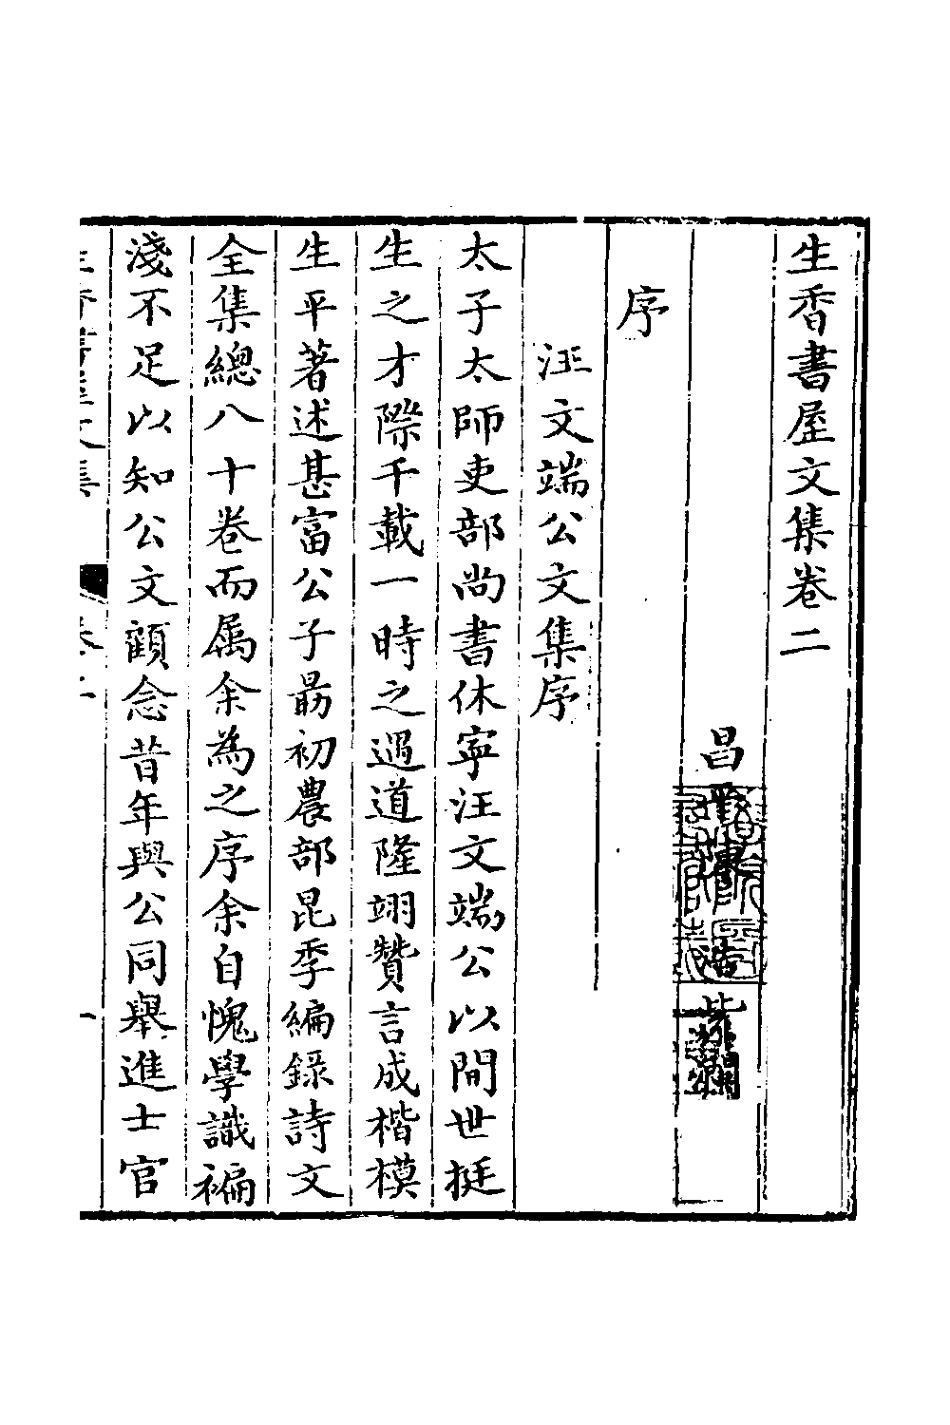 生香書屋文集卷二
昌平陳浩紫瀾
序
汪文端公文集序
太子太師吏部尚書休寧汪文端公以間世挺
生之才際千載一時之遇道隆翊贊言成楷模
生平著述甚富公子最初農部昆季編錄詩文
全集總八十卷而属余為之序余自愧學識褊
淺不足以知公文顧念昔年與公同舉進士官